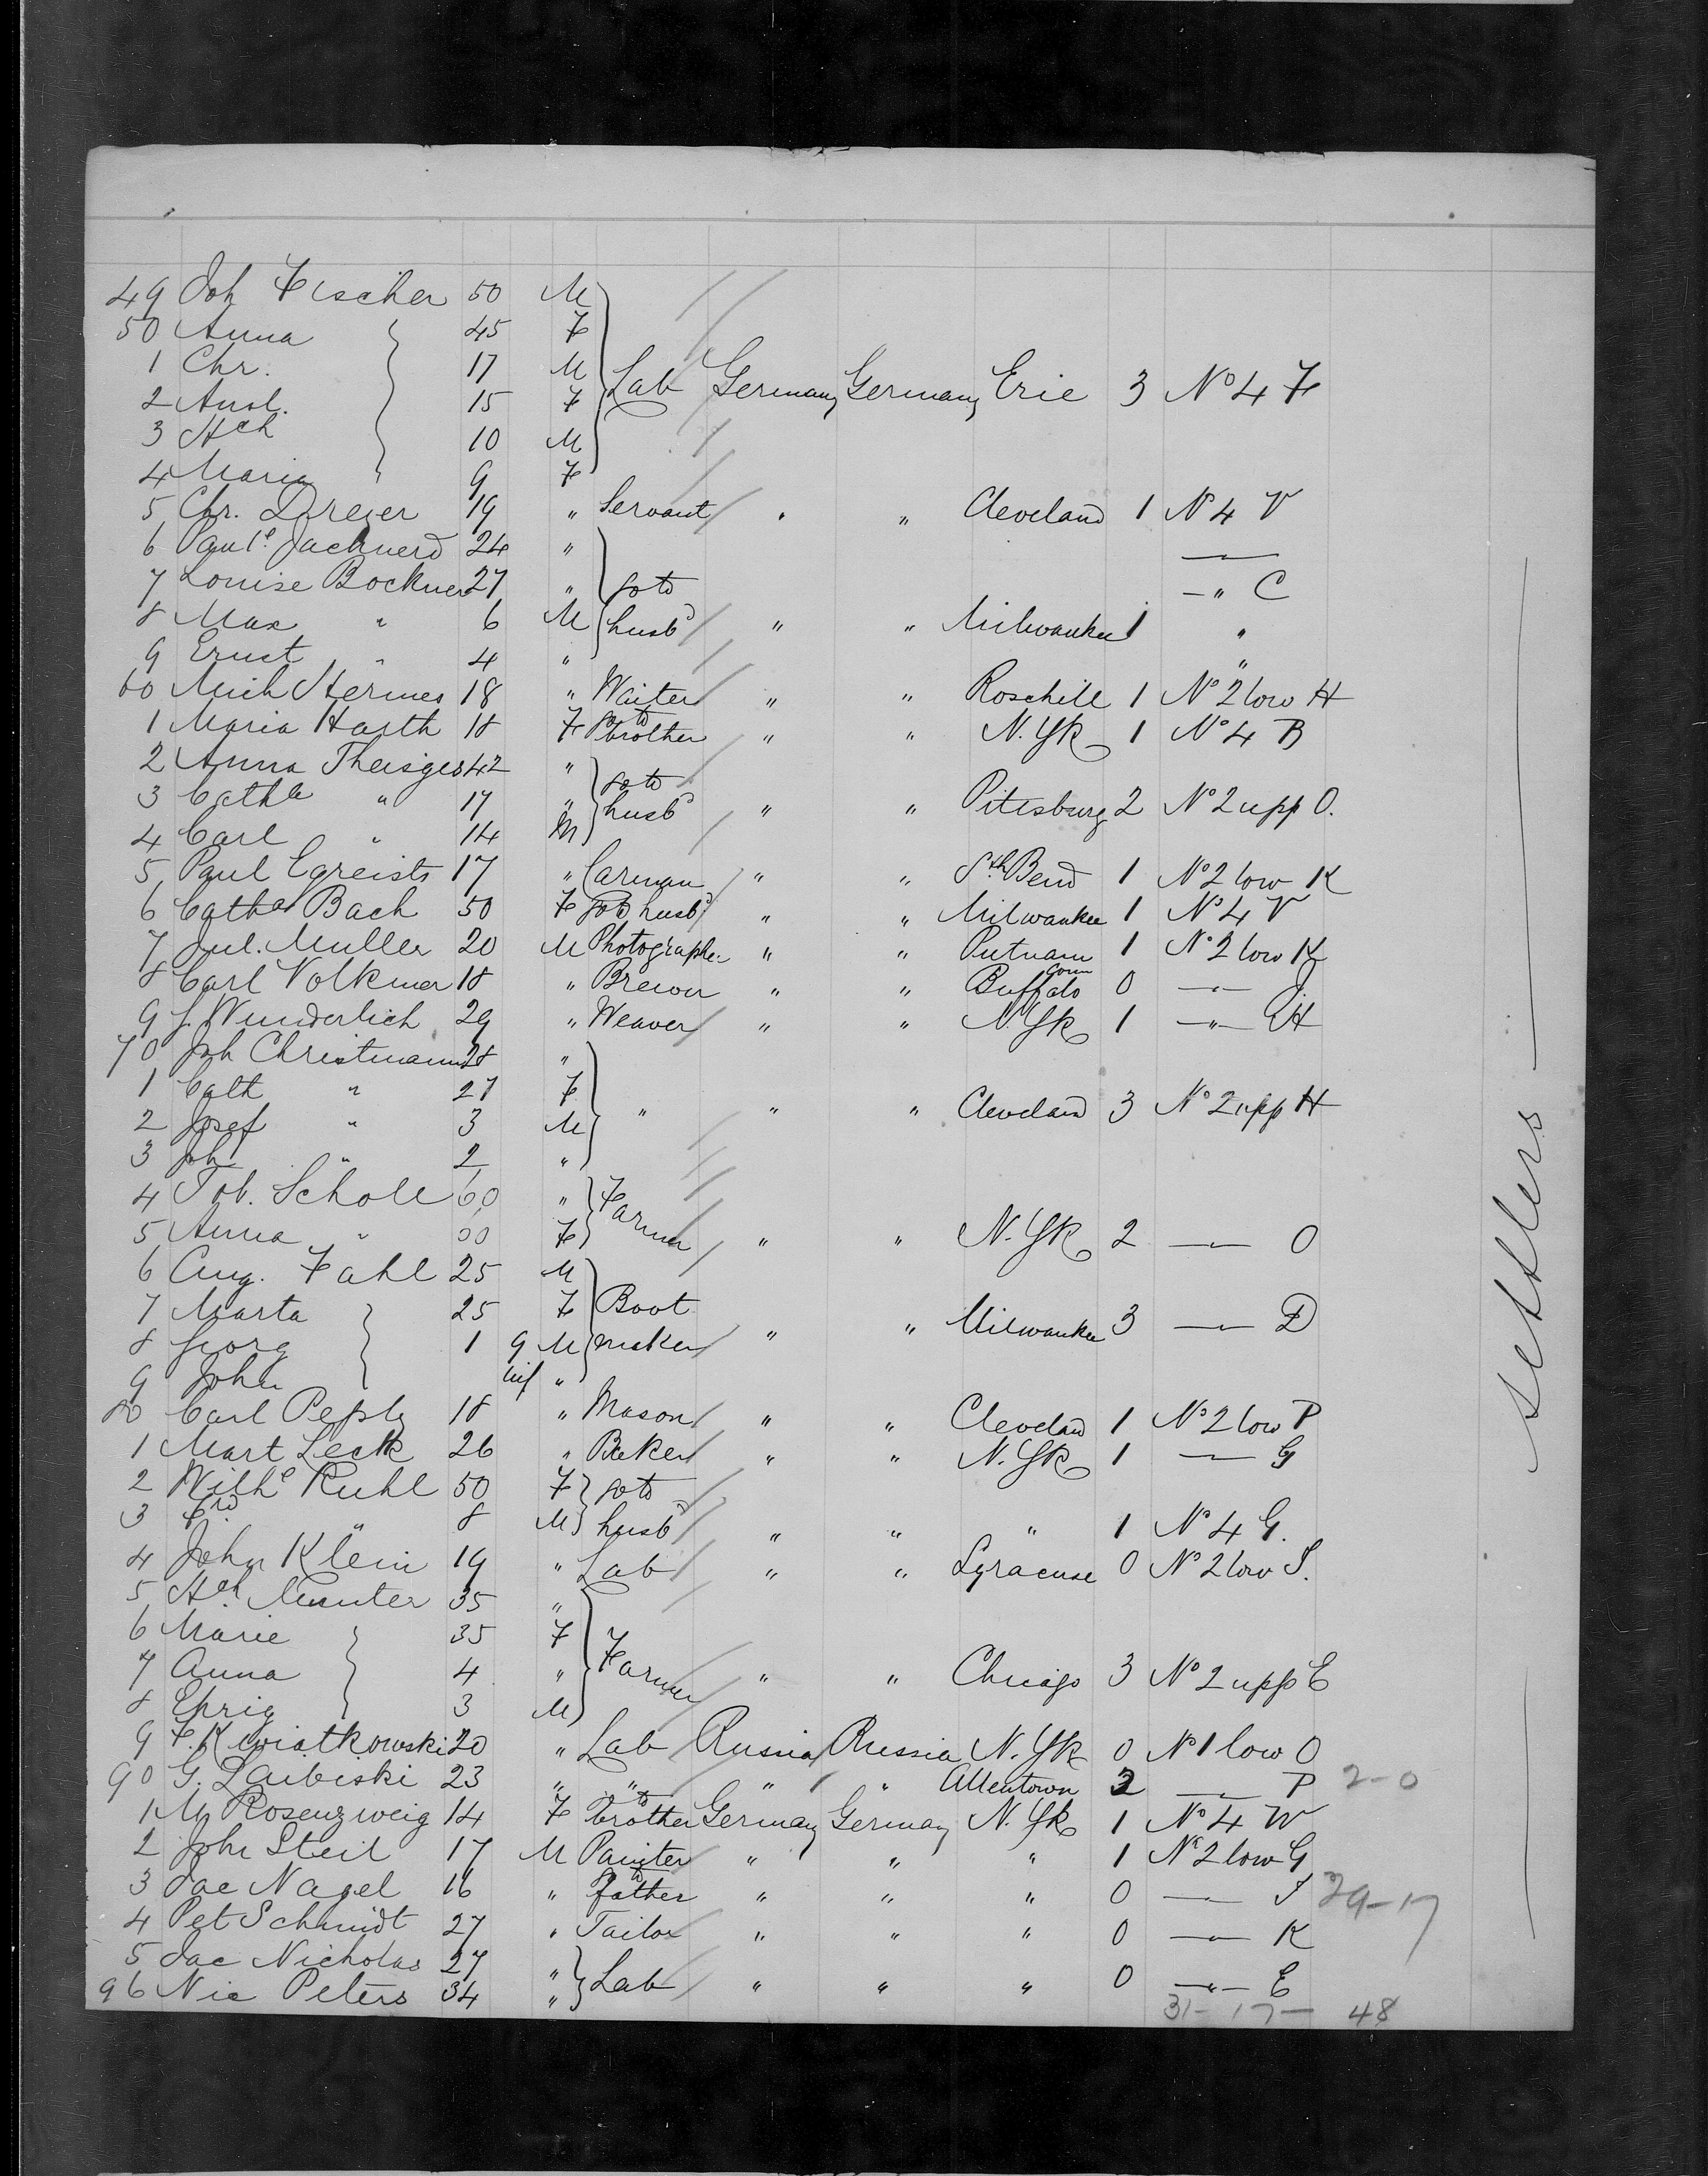 49 Joh Fischer 50 M
50 Anna 45 F
1 Chr. 17 M Lab Germany Germany Erie 3 Nº 4 F
2 15 F
3 Hch 10 M
4 Maria 9 F
5 Chr. Dreyer 19 " Servant " " Cleveland 1 Nº 4 V
6 24 "
7 Louise 27 " go to —"— C
8 Max " 6 M husbd " " Milwaukee 1 "
9 Ernst " 4 " "
60 Mich Hermes 18 " Waiter " " Rosehill 1 Nº 2 low H
1 Maria Harth 18 F to brother " " N. Yk 1 Nº 4 B
2 Anna 42 " go to
3 Cathe " 17 " husbd " " Pittsburg 2 Nº 2 upp O.
4 Carl " 14 M
5 Paul 17 " Carman " " Sth Bend 1 Nº 2 low K
6 Catha Bach 50 F go to husbd " " Milwaukee 1 Nº 4 V
7 Jul. Muller 20 M Photographer " " Putnam Conn 1 Nº 2 low K
8 Carl Volkmer 18 " Brewer " " Buffalo 0 —"— J
9 J. Wunderlich 29 " Weaver " " N Yk 1 —"— H
70 Joh Christmann 28 "
1 Cath " 27 F
2 Josef " 3 M " " " Cleveland 3 Nº 2 upp H
3 Joh " 2 "
4 Tob. Scholl 60 " Farmer
5 Anna " F " " N. Yk 2 —"— O
6 Aug. Fahl 25 M
7 Marta 25 F Boot
8 Georg 1 9 M maker " " Milwaukee 3 —"— D
9 John inf "
80 Carl 18 " Mason " " Cleveland 1 Nº 2 low P
1 Mart Leck 26 " Baker " " N. Yk 1 —"— G
2 Wilhe Ruhl 50 F go to
3 Frd " 8 M husbd " " " 1 Nº 4 G.
4 John Klein 19 " Lab " " Syracuse 0 Nº 2 low S.
5 Hch 35 "
6 Marie 35 F
7 Anna 4 " Farmer " " Chicago 3 Nº 2 upp E
8 3 M
9 F. Kwiatkowski 20 " Lab Russia Russia N. Yk 0 Nº 1 low O
90 G. 23 " " " " Allentown 2 —"— P 2-0
1 M Rosenzweig 14 F to brother Germany Germany N. Yk 1 Nº 4 W
2 John Steil 17 M Painter " " " 1 Nº 2 low G
3 Jac Nagel 16 " to father " " " 0 —"— J 29-17
4 Pet Schmidt 27 " Tailor " " " 0 —"— K
5 Jac Nicholas 27 "
96 Nic Peters 34 " Lab " " " 0 —"— E
31-17— 48
settlers